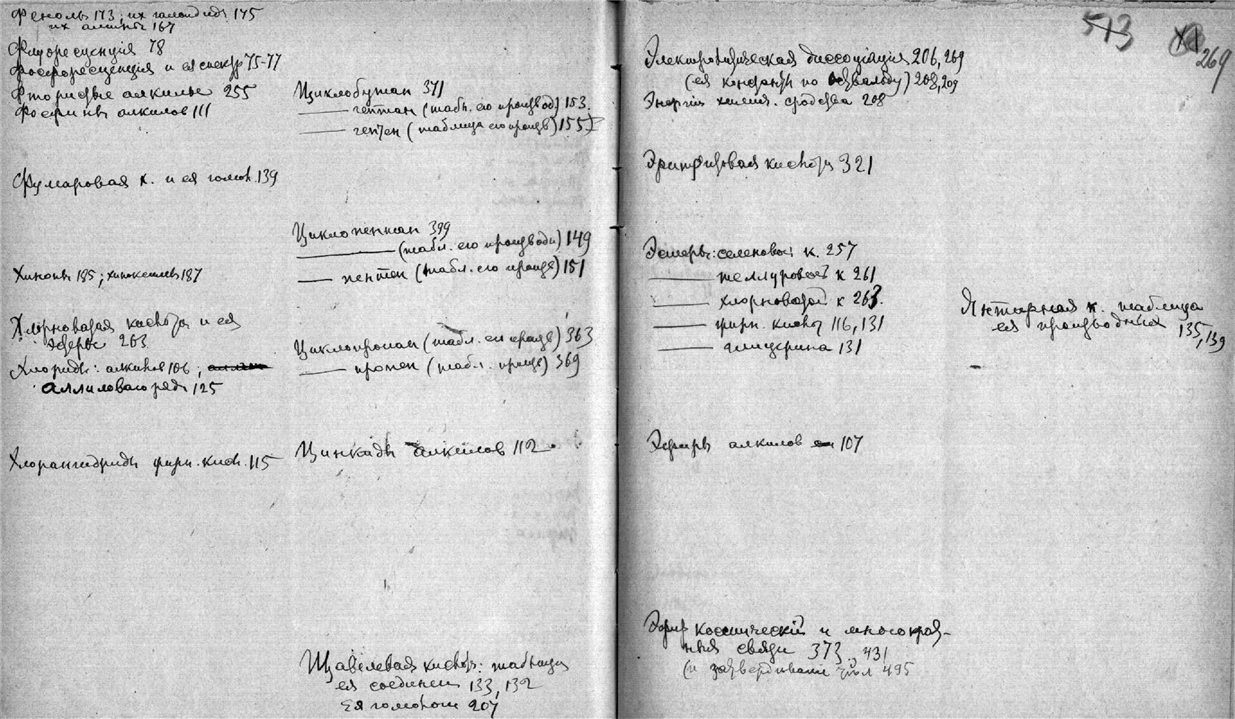 Фенолы 173; их галоидиды 175
их амины 167
Флуоресценція 78
Фосфоресценція и ея спектр 75-77
Фтористые алкилы 255
Фосфины алкилов 111
Фумаровая к. и ея голом. 139
Хиноны 185; хиноксилы 187
Хлорноватая кислота и ея
эфиры 263
Хлориды: алкилов 106;
аллиловаго ряда 125
Хлорангидриды жирн. кисл. 115
Циклобутан 371
—— гептан (табл. его производ) 153.
—— гептен (таблица его произв) 155
Циклопентан 399
—— (табл. его производн) 149
—— пентен (табл. его произв) 151
Циклопропан (табл. его произв) 363
—— пропен (табл. произв) 369
Цинкады алкилов 112
Щавелевая кислота: таблица
ея соединен 133, 132
Ея гомологи 207
513
269
Электролитическая диссоціація 206, 269
(ея константы по Оствальду) 208, 209
Энергія химич. сродства 208
Эритритовая кислота 321
Эстеры: селеновой к. 257
—— теллуровой к 261
—— хлорноватой к 263.
—— жирн. кислот 116, 131
—— глицерина 131
Эфиры алкилов 107
Эфир космическій и многократ-
ныя связи 373, 431
(и затвердиваніи 495
Янтарная к. таблица
ея производных 135, 139